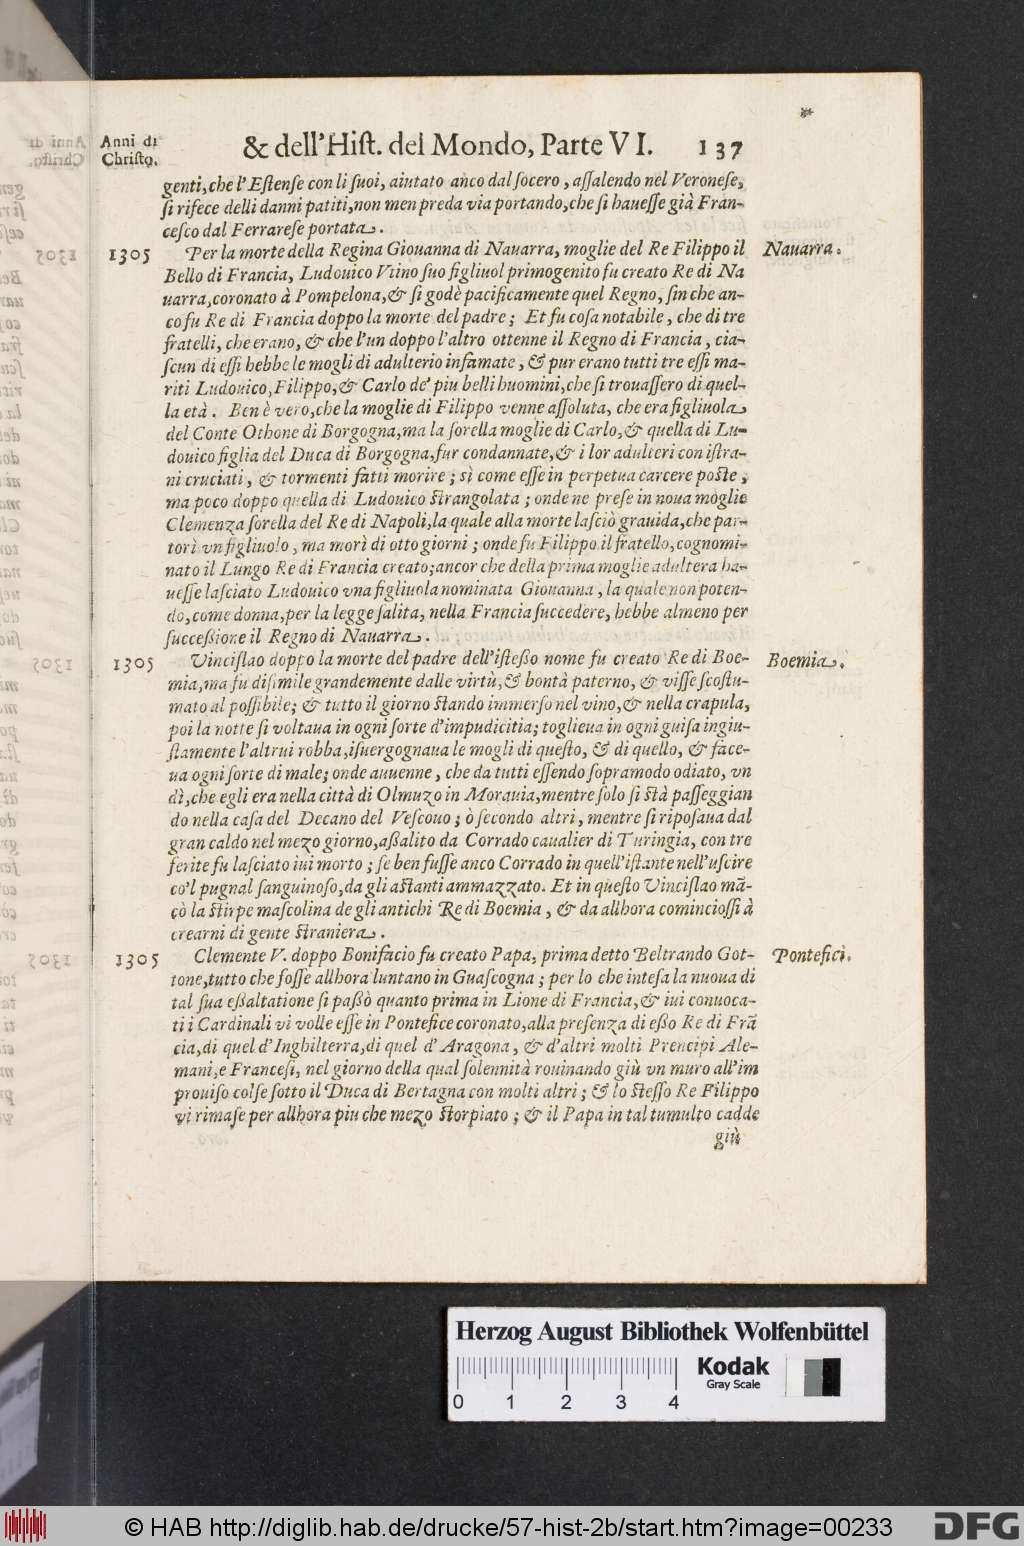 Anni di
Christo.
& dell'Hist. del Mondo, Parte VI. 137
genti, che l'Estense con li suoi, aiutato anco dal socero, assalendo nel Veronese,
si rifece delli danni patiti, non men preda via portando, che si hauesse già Fran-
cesco dal Ferrarese portata.
1305 Per la morte della Regina Giouanna di Nauarra, moglie del Re Filippo il Nauarra.
Bello di Francia, Ludouico Vtino suo figliuol primogenito fu creato Re di Na
uarra, coronato à Pompelona, & si godè pacificamente quel Regno, sin che an-
co fu Re di Francia doppo la morte del padre; Et fu cosa notabile, che di tre
fratelli, che erano, & che l'un doppo l'altro ottenne il Regno di Francia, cia-
scun di essi hebbe le mogli di adulterio infamate, & pur erano tutti tre essi ma-
riti Ludouico, Filippo, & Carlo de' piu belli huomini, che si trouassero di quel-
la età. Ben è vero, che la moglie di Filippo venne assoluta, che era figliuola
del Conte Othone di Borgogna, ma la sorella moglie di Carlo, & quella di Lu-
douico figlia del Duca di Borgogna, fur condannate, & i lor adulteri con istra-
ni cruciati, & tormenti fatti morire; sì come esse in perpetua carcere poste,
ma poco doppo quella di Ludouico strangolata; onde ne prese in noua moglie
Clemenza sorella del Re di Napoli, la quale alla morte lasciò grauida, che par-
torì vn figliuolo, ma morì di otto giorni; onde fu Filippo il fratello, cognomi-
nato il Lungo Re di Francia creato; ancor che della prima moglie adultera ha-
uesse lasciato Ludouico vna figliuola nominata Giouanna, la quale non poten-
do, come donna, per la legge salita, nella Francia succedere, hebbe almeno per
successione il Regno di Nauarra.
1305 Vincislao doppo la morte del padre dell'istesso nome fu creato Re di Boe- Boemia.
mia, ma fu disimile grandemente dalle virtù, & bontà paterno, & visse scostu-
mato al possibile; & tutto il giorno stando immerso nel vino, & nella crapula,
poi la notte si voltaua in ogni sorte d'impudicitia; toglieua in ogni guisa ingiu-
stamente l'altrui robba, isuergognaua le mogli di questo, & di quello, & face-
ua ogni sorte di male; onde auuenne, che da tutti essendo sopramodo odiato, vn
dì, che egli era nella città di Olmuzo in Morauia, mentre solo si stà passeggian
do nella casa del Decano del Vescouo; ò secondo altri, mentre si riposaua dal
gran caldo nel mezo giorno, assalito da Corrado caualier di Turingia, con tre
ferite fu lasciato iui morto; se ben fusse anco Corrado in quell'istante nell'uscire
co'l pugnal sanguinoso, da gli astanti ammazzato. Et in questo Vincislao mã-
cò la stirpe mascolina de gli antichi Re di Boemia, & da allhora cominciossi à
crearni di gente straniera.
1305 Clemente V. doppo Bonifacio fu creato Papa, prima detto Beltrando Got- Pontefici.
tone, tutto che fosse allhora luntano in Guascogna; per lo che intesa la nuoua di
tal sua essaltatione si passò quanto prima in Lione di Francia, & iui conuoca-
ti i Cardinali vi volle esse in Pontefice coronato, alla presenza di esso Re di Frã
cia, di quel d'Inghilterra, di quel d'Aragona, & d'altri molti Prencipi Ale-
mani, e Francesi, nel giorno della qual solennità rouinando giù vn muro all'im
prouiso colse sotto il Duca di Bertagna con molti altri; & lo stesso Re Filippo
vi rimase per allhora piu che mezo storpiato; & il Papa in tal tumulto cadde
giù
Herzog August Bibliothek Wolfenbüttel
0 1 2 3 4
Kodak
Gray Scale
© HAB http://diglib.hab.de/drucke/57-hist-2b/start.htm?image=00233
DFG